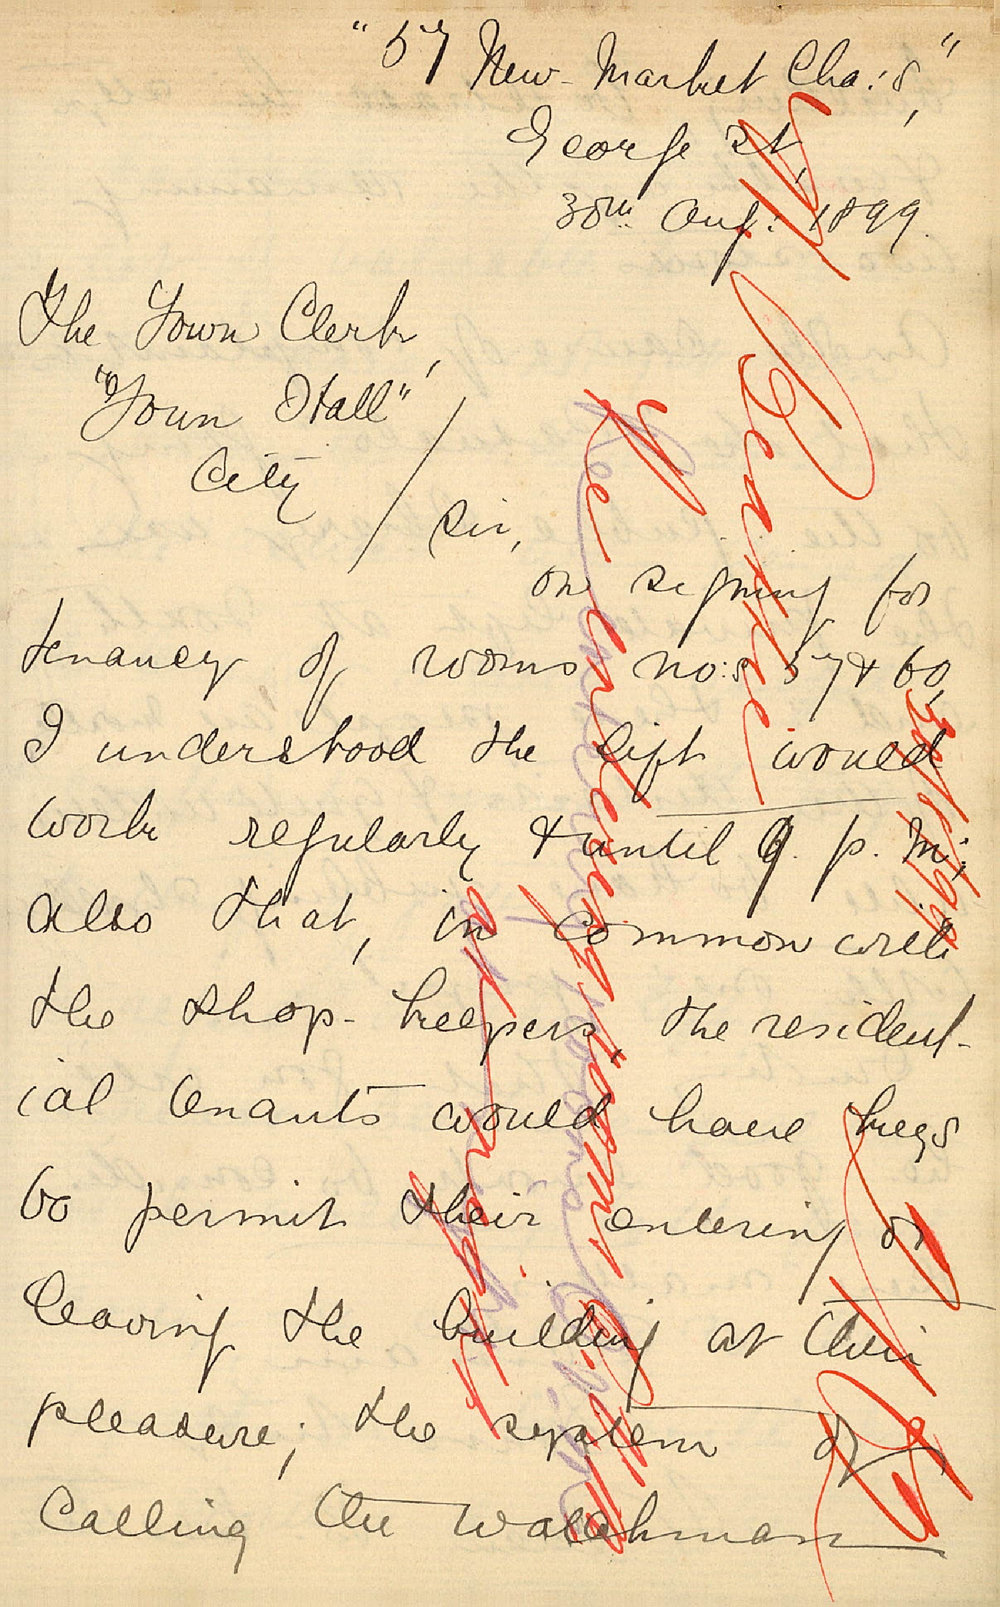 "57 New Market Cha:s,"
George St,
30th Aug: 1899.
The Town Clerk,
"Town Hall"
City
Sir,
on signing for
tenancy of rooms no:s 57 & 60,
I understood the lift would
work regularly & until 9. p. m;
also that, in common with
the shop-keepers, the resident-
ial tenants would have keys
to permit their entering or
leaving the building at their
pleasure; the system of
calling the watchman
Mr Beattie
Re entering rooms
at night
31/8/99